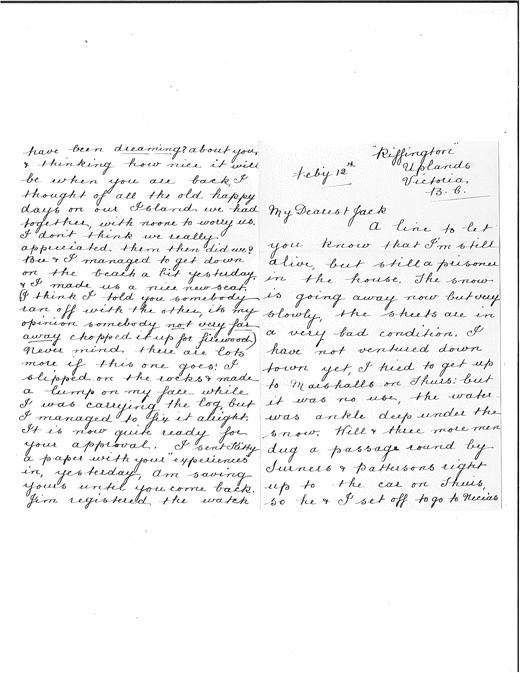 "Riffington"
Uplands
Feby 12th Victoria,
B.C.
My Dearest Jack
A line to let
you know that I'm still
alive, but still a prisoner
in the house. The snow
is going away now but very
slowly, the streets are in
a very bad condition. I
have not ventured down
town yet, I tried to get up
to Marshalls on Thurs: but
it was no use, the water
was ankle deep under the
snow. Will & three more men
dug a passage round by
Turners & Pattersons right
up to the car on Thurs,
so he & I set off to go to
have been dreaming? about you,
& thinking how nice it will
be when you are back, I
thought of all the old happy
days on our Island we had
together, with noone to worry us.
I don't think we really
appreciated them then did we?
Bee & I managed to get down
on the beach a bit yesterday,
& I made us a nice new seat.
(I think I told you somebody
ran off with the other, its my
opinion somebody not very far
away chopped it up for firewood)
Never mind, there are lots
more if this one goes! I
slipped on the rocks & made
a lump on my face while
I was carrying the log, but
I managed to fix it alright.
It is now quite ready for
your approval. I sent Kitty
a paper with your "experiences"
in, yesterday, am saving
yours until you come back.
Jim registered the watch